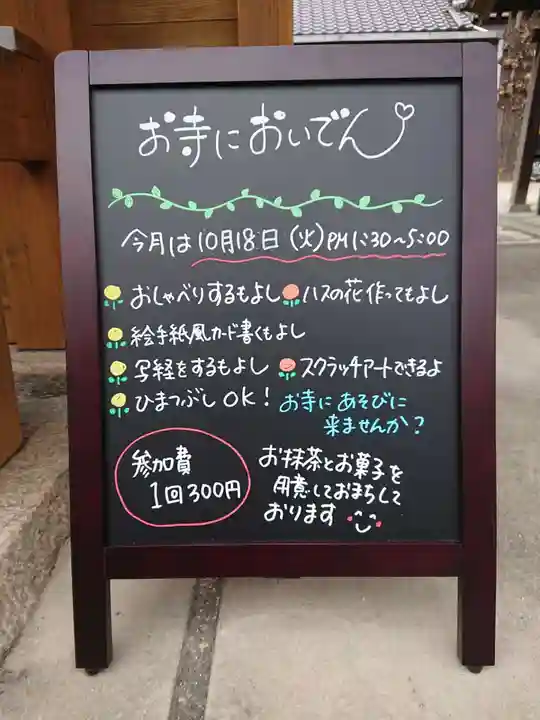 お寺においでん
今月は10月18日(火)PM1:30~5:00
おしゃべりするもよし ハスの花作ってもよし
絵手紙風カード書くもよし
写経をするもよし スクラッチアートできるよ
ひまつぶしOK! お寺にあそびに
来ませんか?
参加費
1回300円
お抹茶とお菓子を
用意しておまちして
おります